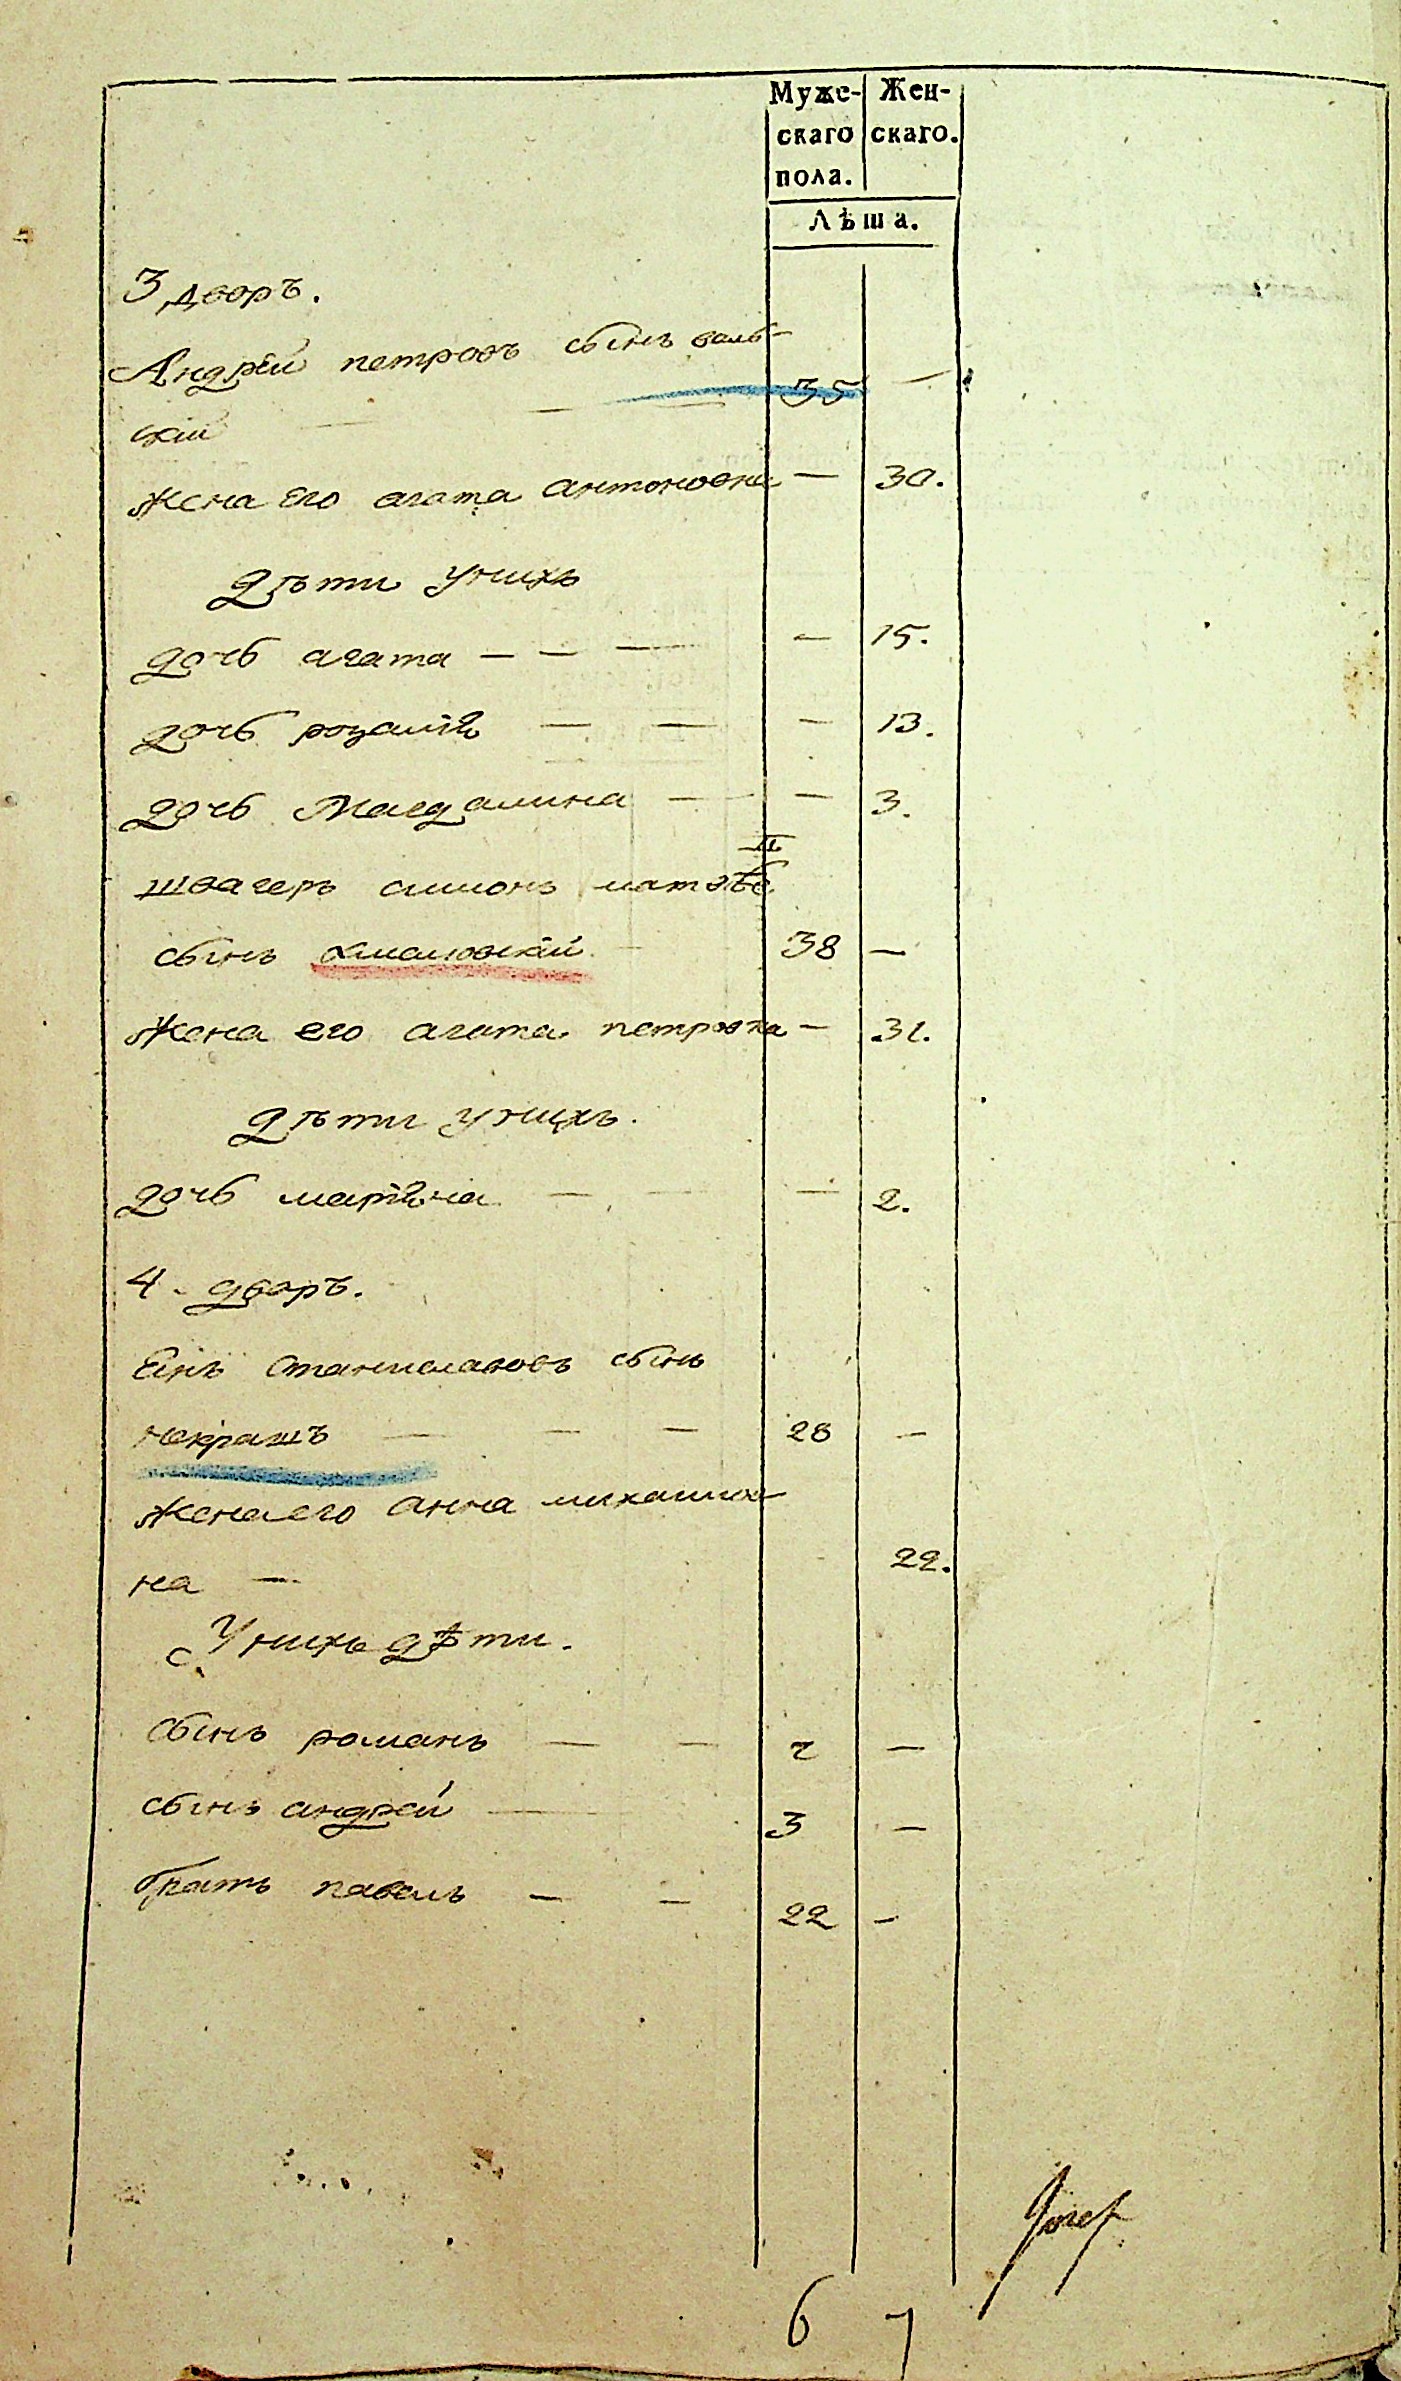 Муже- Жен-
скаго скаго.
пола.
Лѣта.
3 дворъ.
Андрей петровъ сынъ валь-
скій — — — 35 —
жена его агата антоновна — 30.
дѣти унихъ
дочь агата — — — — 15.
дочь розалія — — — 13.
дочь Магдалина — — 3.
швагеръ симонъ матвѣе
сынъ 38 —
жена его агата петровна — 31.
дѣти унихъ.
дочь маріяна — — — 2.
4. дворъ.
Янъ Станиславовъ сынъ
некрашъ — — — 28 —
жена его анна михаилов
на — 22.
Унихъ дѣти.
сынъ романъ — — —
сынъ андрей — 3 —
братъ павелъ — — 22 —
Jozef
6 7